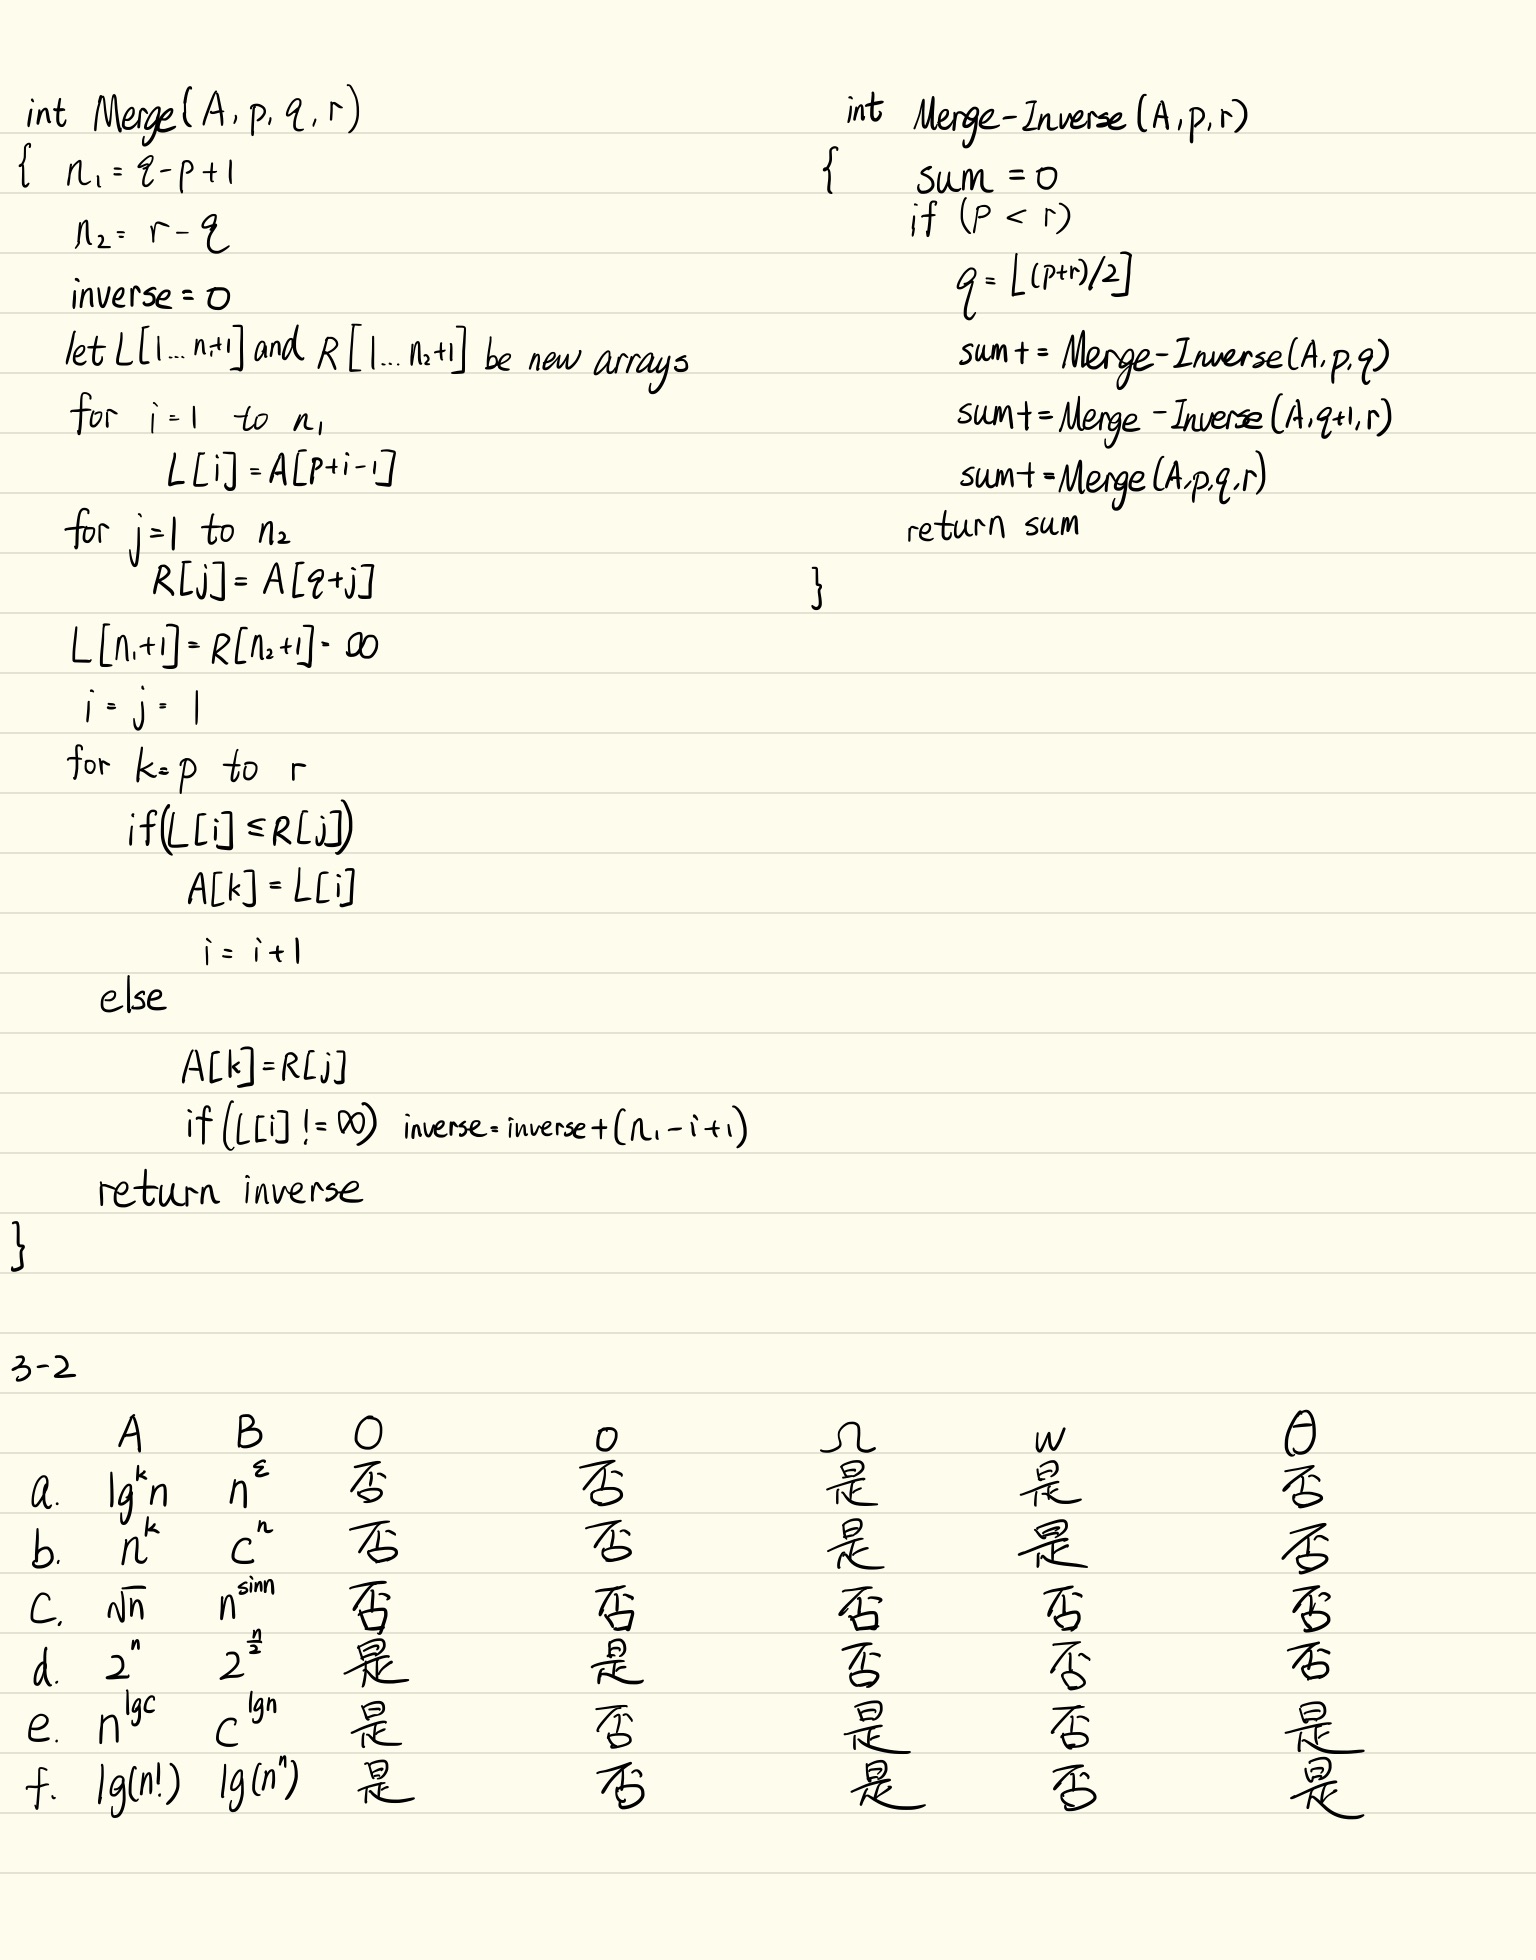 int Merge(A, p, q, r)
{ n₁ = q-p+1
n₂ = r-q
inverse = 0
let L[1...n₁+1] and R[1...n₂+1] be new arrays
for i=1 to n₁
L[i] = A[p+i-1]
for j=1 to n₂
R[j] = A[q+j]
L[n₁+1] = R[n₂+1] = ∞
i = j = 1
for k=p to r
if(L[i] ≤ R[j])
A[k] = L[i]
i = i+1
else
A[k] = R[j]
if(L[i] != ∞) inverse = inverse+(n₁-i+1)
return inverse
}
int Merge-Inverse(A, p, r)
{ sum = 0
if (p < r)
q = ⌊(p+r)/2⌋
sum += Merge-Inverse(A, p, q)
sum += Merge-Inverse(A, q+1, r)
sum += Merge(A, p, q, r)
return sum
}
3-2
A B O o Ω w θ
a. lgᵏn n^ε 否 否 是 是 否
b. nᵏ cⁿ 否 否 是 是 否
c. √n n^sinn 否 否 否 否 否
d. 2ⁿ 2^(n/2) 是 是 否 否 否
e. n^lgc c^lgn 是 否 是 否 是
f. lg(n!) lg(nⁿ) 是 否 是 否 是